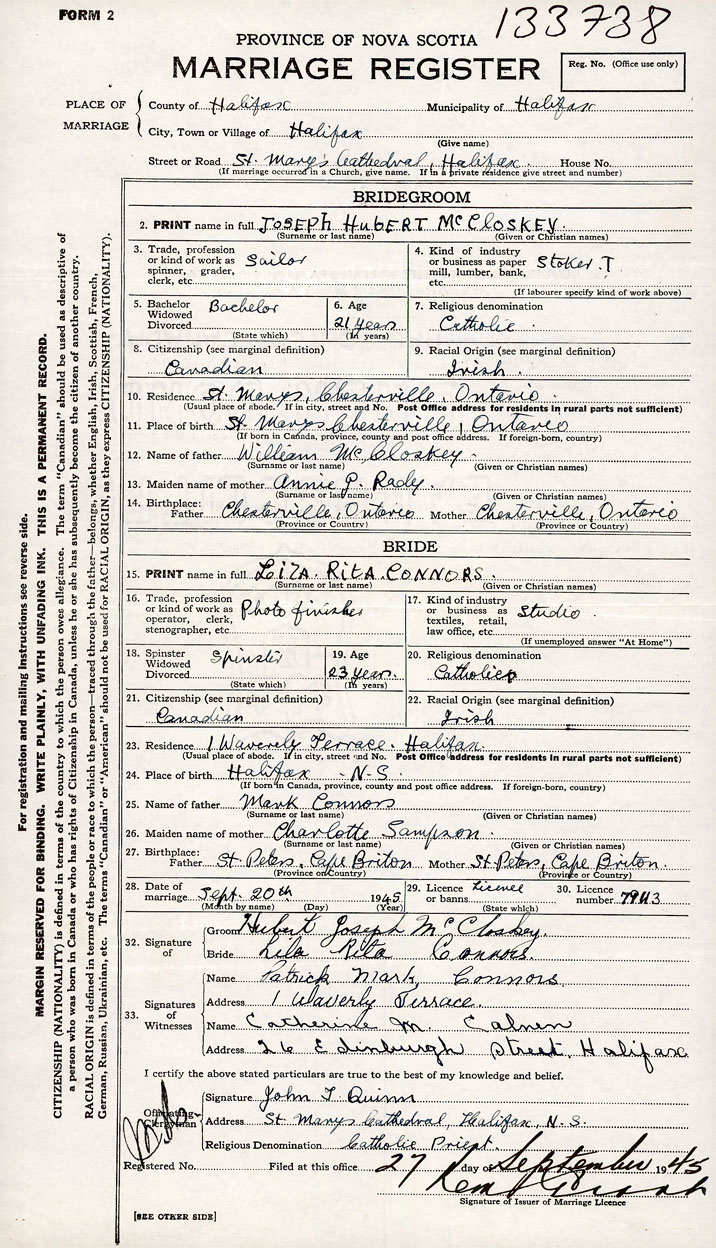 FORM 2
133738
PROVINCE OF NOVA SCOTIA
MARRIAGE REGISTER
Reg. No. (Office use only)
PLACE OF MARRIAGE
County of Halifax Municipality of Halifax
City, Town or Village of Halifax
(Give name)
Street or Road St. Mary's Cathedral, Halifax. House No.
(If marriage occurred in a Church, give name. If in a private residence give street and number)
BRIDEGROOM
2. PRINT name in full JOSEPH HUBERT McCLOSKEY.
(Surname or last name) (Given or Christian names)
3. Trade, profession or kind of work as spinner, grader, clerk, etc. Sailor
4. Kind of industry or business as paper mill, lumber, bank, etc. Stoker. T
(If labourer specify kind of work above)
5. Bachelor Widowed Divorced Bachelor
(State which)
6. Age 21 years
(In years)
7. Religious denomination
Catholic.
8. Citizenship (see marginal definition)
Canadian
9. Racial Origin (see marginal definition)
Irish.
10. Residence St. Marys, Chesterville, Ontario.
(Usual place of abode. If in city, street and No. Post Office address for residents in rural parts not sufficient)
11. Place of birth St Marys Chesterville, Ontario
(If born in Canada, province, county and post office address. If foreign-born, country)
12. Name of father William McCloskey.
(Surname or last name) (Given or Christian names)
13. Maiden name of mother Annie P. Rady.
(Surname or last name) (Given or Christian names)
14. Birthplace: Father Chesterville, Ontario Mother Chesterville, Ontario
(Province or Country) (Province or Country)
BRIDE
15. PRINT name in full LIZA. RITA CONNORS.
(Surname or last name) (Given or Christian names)
16. Trade, profession or kind of work as operator, clerk, stenographer, etc. Photo finisher
17. Kind of industry or business as textiles, retail, law office, etc. Studio.
(If unemployed answer "At Home")
18. Spinster Widowed Divorced Spinster
(State which)
19. Age 23 years.
(In years)
20. Religious denomination
Catholic
21. Citizenship (see marginal definition)
Canadian
22. Racial Origin (see marginal definition)
Irish
23. Residence 1 Waverly Terrace. Halifax.
(Usual place of abode. If in city, street and No. Post Office address for residents in rural parts not sufficient)
24. Place of birth Halifax - N-S.
(If born in Canada, province, county and post office address. If foreign-born, country)
25. Name of father Mark Connors
(Surname or last name) (Given or Christian names)
26. Maiden name of mother Charlotte Sampson.
(Surname or last name) (Given or Christian names)
27. Birthplace: Father St Peters, Cape Briton Mother St Peters, Cape Briton.
(Province or Country) (Province or Country)
28. Date of marriage Sept. 20th 1945
(Month by name) (Day) (Year)
29. Licence or banns Licence
(State which)
30. Licence number
32. Signature of
Groom Hubert Joseph McCloskey.
Bride Lila Rita Connors.
33. Signatures of Witnesses
Name Patrick Mark, Connors
Address 1 Waverly Terrace.
Name Catherine M. Calnen
Address 26 Edinburgh Street, Halifax
I certify the above stated particulars are true to the best of my knowledge and belief.
Officiating Clergyman
Signature John T Quinn
Address St Marys Cathedral, Halifax, N.S.
Religious Denomination Catholic Priest.
Registered No. Filed at this office 27 day of September 1945
Signature of Issuer of Marriage Licence
[SEE OTHER SIDE]
For registration and mailing instructions see reverse side.
MARGIN RESERVED FOR BINDING. WRITE PLAINLY, WITH UNFADING INK. THIS IS A PERMANENT RECORD.
CITIZENSHIP (NATIONALITY) is defined in terms of the country to which the person owes allegiance. The term "Canadian" should be used as descriptive of
a person who was born in Canada or who has rights of Citizenship in Canada, unless he or she has subsequently become the citizen of another country.
RACIAL ORIGIN is defined in terms of the people or race to which the person—traced through the father—belongs, whether English, Irish, Scottish, French,
German, Russian, Ukrainian, etc. The terms "Canadian" or "American" should not be used for RACIAL ORIGIN, as they express CITIZENSHIP (NATIONALITY).